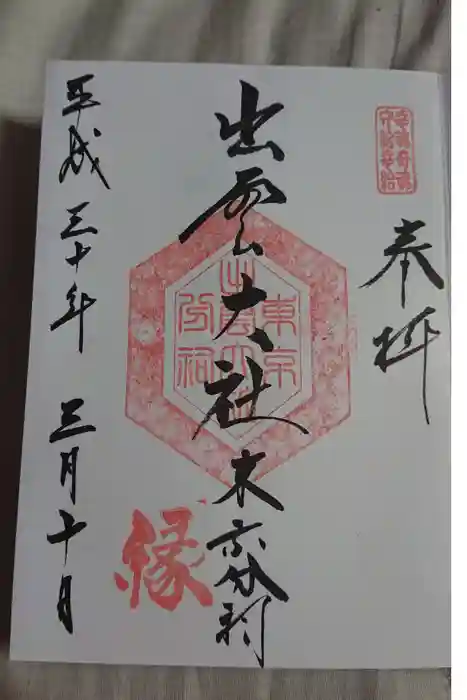 奉拝
出雲大社東京分祠
東京
出雲大社
分祠
縁
平成三十年 三月十日